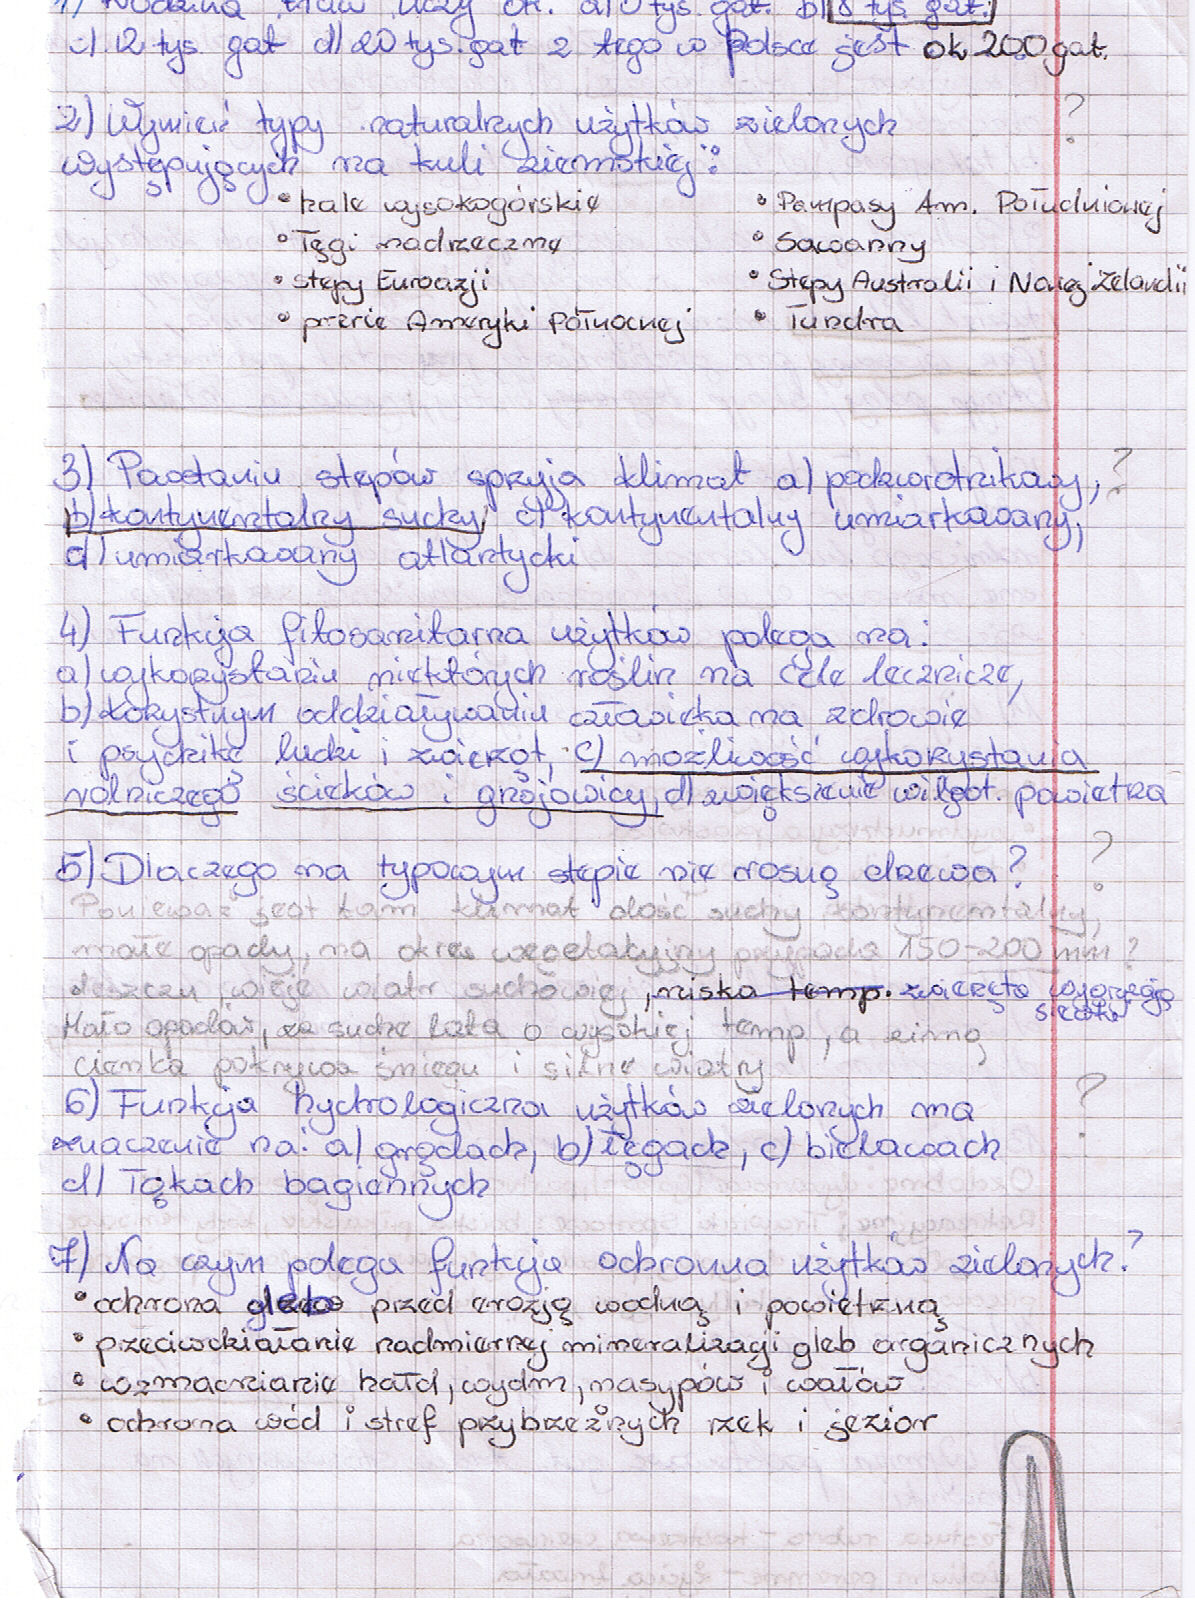 1) Rodzina traw liczy ok. a) 10 tys. gat. b) 8 tys gat.
c) 12 tys. gat d) 20 tys. gat z tego w Polsce jest ok 200 gat.
2) Wymień typy naturalnych użytków zielonych ?
występujących na kuli ziemskiej:
• hale wysokogórskie
• Łęgi nadrzeczne
• stepy Euroazji
• prerie Ameryki Północnej
• Pampasy Am. Południowej
• Sawanny
• Stepy Australii i Nowej Zelandii
• Tundra
3) Powstaniu stepów sprzyja klimat a) podzwrotnikowy, ?
b) kontynentalny suchy, c) kontynentalny umiarkowany,
d) umiarkowany atlantycki
4) Funkcja fitosanitarna użytków polega na:
a) wykorzystaniu niektórych roślin na cele lecznicze,
b) korzystnym oddziaływaniu człowieka na zdrowie
i psychikę ludzi i zwierząt, c) możliwość wykorzystania
rolniczego ścieków i gnojowicy, d) zwiększenie wilgot. powietrza
5) Dlaczego na typowym stepie nie rosną drzewa? ?
Ponieważ jest tam klimat dość suchy kontynentalny,
małe opady, na okres wegetacyjny przypada 150-200 mm ?
deszczu, wieje wiatr suchowiej, niska temp. zwierzęta wygryzają
siewki
Mało opadów, ze suche lata o wysokiej temp, a zimną
cienka pokrywa śniegu i silne wiatry
6) Funkcja hydrologiczna użytków zielonych ma ?
znaczenie na: a) grądach, b) łęgach, c) bielawach
d) łąkach bagiennych
7) Na czym polega funkcja ochronna użytków zielonych?
• ochrona gleb przed erozją wodną i powietrzną
• przeciwdziałanie nadmiernej mineralizacji gleb organicznych
• wzmacnianie hałd, wydm, nasypów i wałów
• ochrona wód i stref przybrzeżnych rzek i jezior